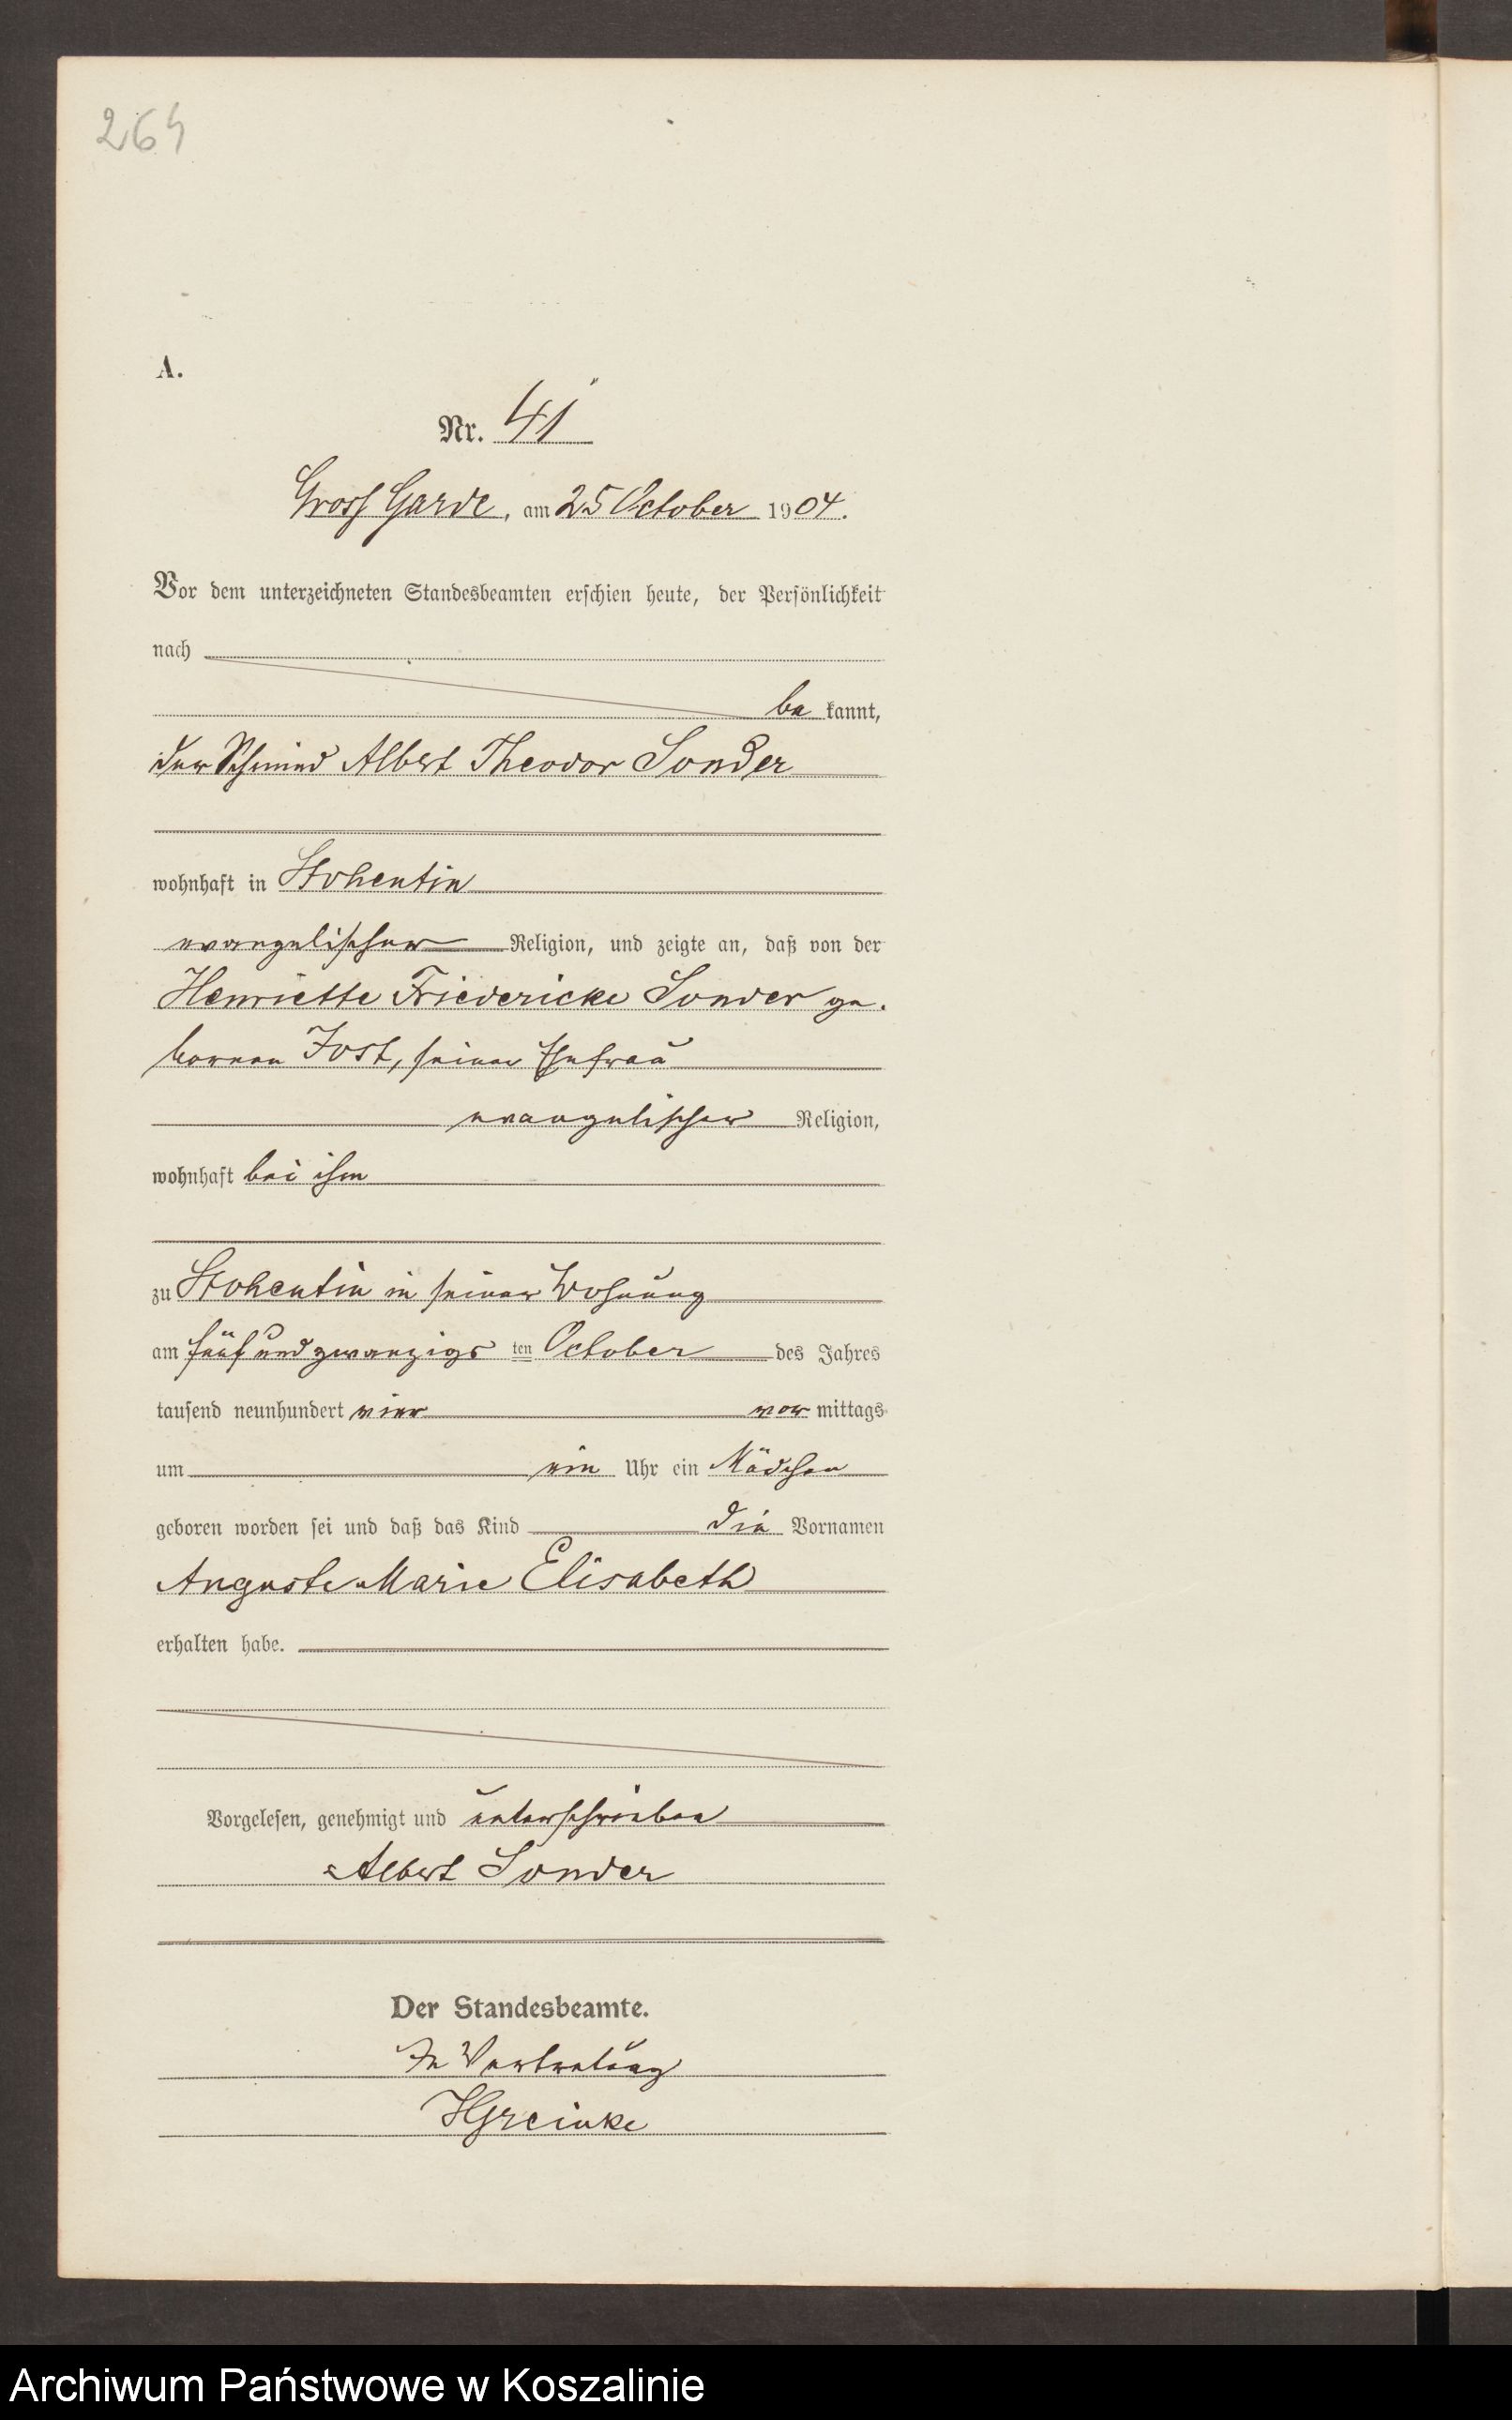 264
A.
Nr. 41
Gross Garde, am 25 October 1904.
Vor dem unterzeichneten Standesbeamten erschien heute, der Persönlichkeit
nach
be kannt,
der Schmied Albert Theodor Sonder
wohnhaft in Stohentin
evangelischer Religion, und zeigte an, daß von der
Henriette Friedericke Sonder ge.
bornen Jost, seiner Ehefrau
evangelischer Religion,
wohnhaft bei ihm
zu Stohentin in seiner Wohnung
am fünf und zwanzigs ten October des Jahres
tausend neunhundert vier vor mittags
um ein Uhr ein Mädchen
geboren worden sei und daß das Kind die Vornamen
Auguste Marie Elisabeth
erhalten habe.
Vorgelesen, genehmigt und unterschrieben
Albert Sonder
Der Standesbeamte.
In Vertretung
HGreinke
Archiwum Państwowe w Koszalinie